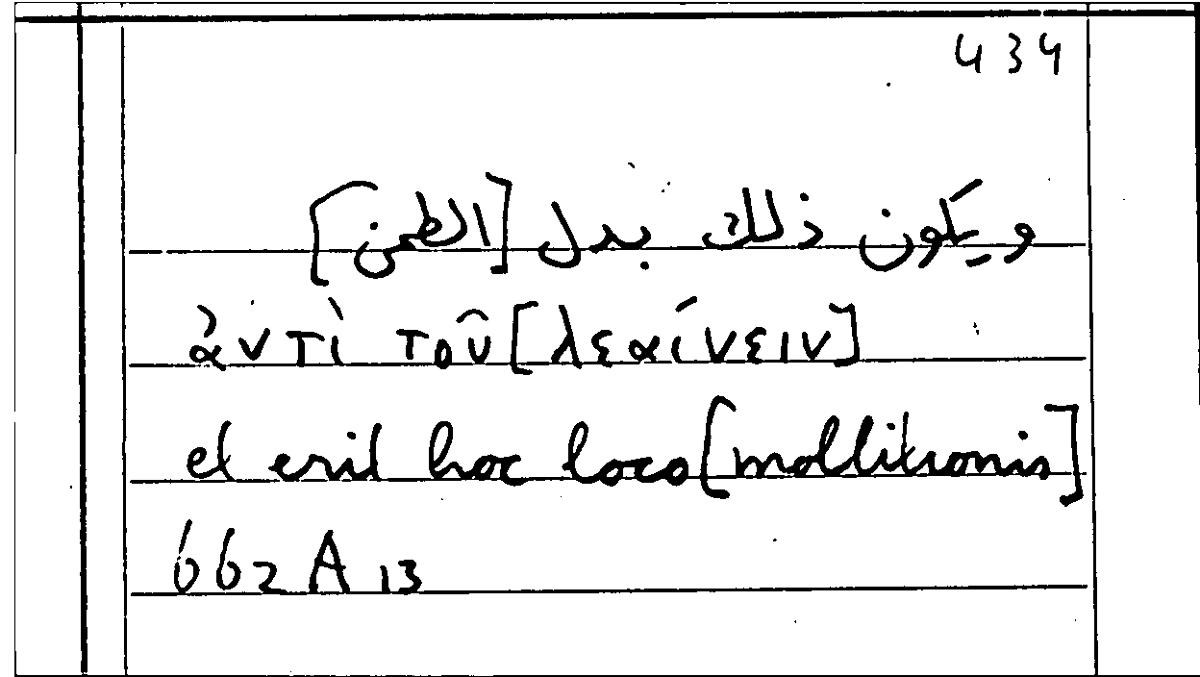 434
ويكون ذلك بدل [الطحن]
ἀντὶ τοῦ [λεαίνειν]
et erit hoc loco [mollitionis]
662 A 13